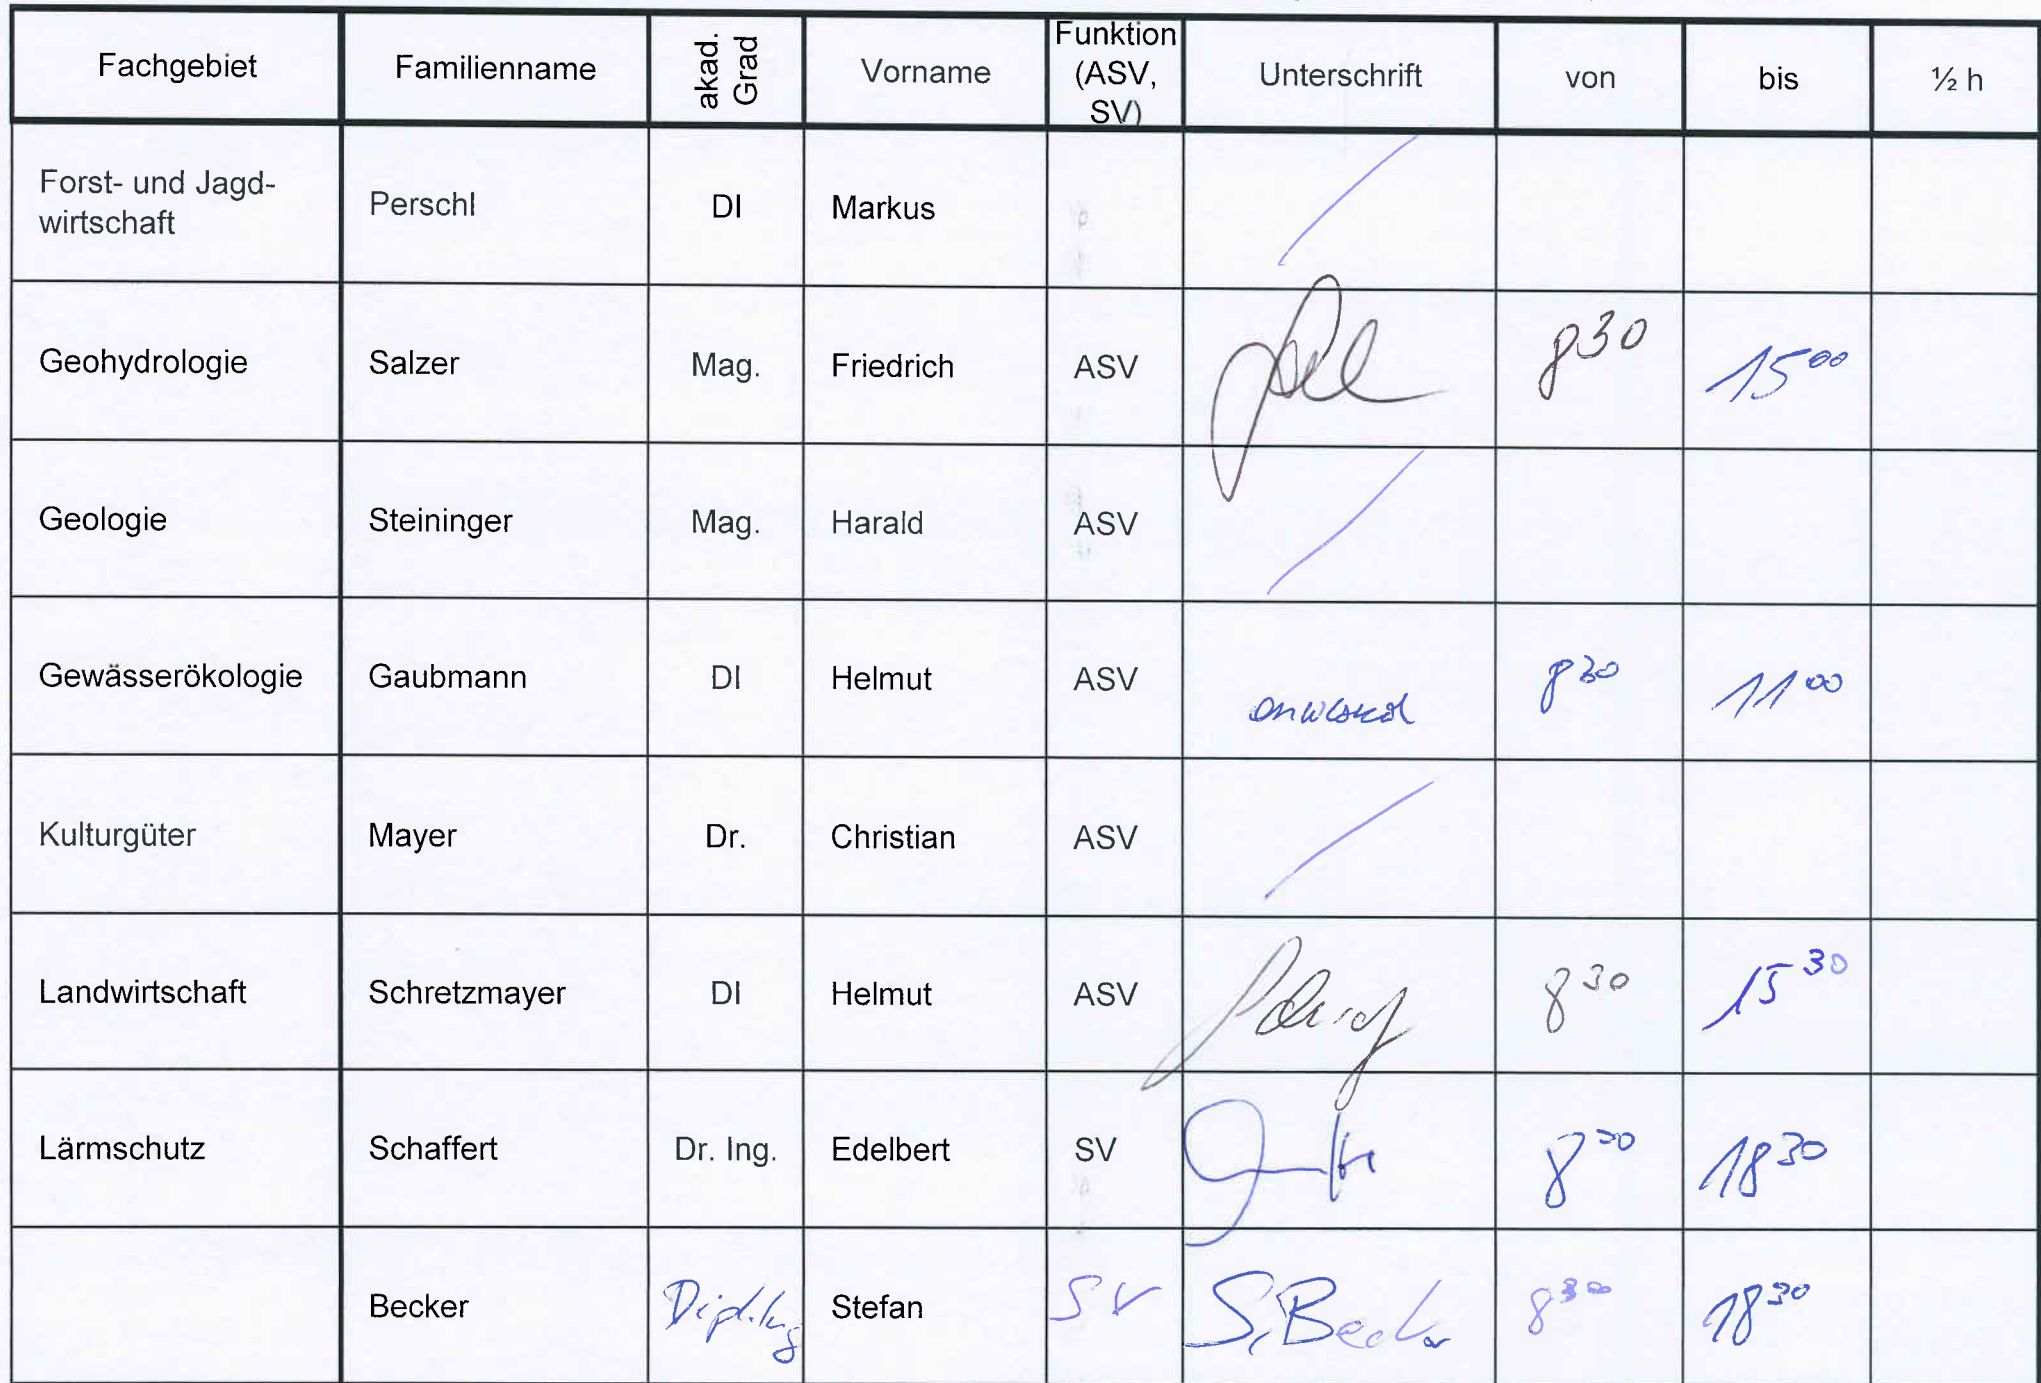 Fachgebiet Familienname akad. Grad Vorname Funktion (ASV, SV) Unterschrift von bis ½ h
Forst- und Jagd-
wirtschaft Perschl DI Markus
Geohydrologie Salzer Mag. Friedrich ASV 8 30 15 00
Geologie Steininger Mag. Harald ASV
Gewässerökologie Gaubmann DI Helmut ASV anwesend 8 30 11 00
Kulturgüter Mayer Dr. Christian ASV
Landwirtschaft Schretzmayer DI Helmut ASV 8 30 15 30
Lärmschutz Schaffert Dr. Ing. Edelbert SV 18 30
Becker Dipl.Ing Stefan SV S. Becker 8 30 18 30